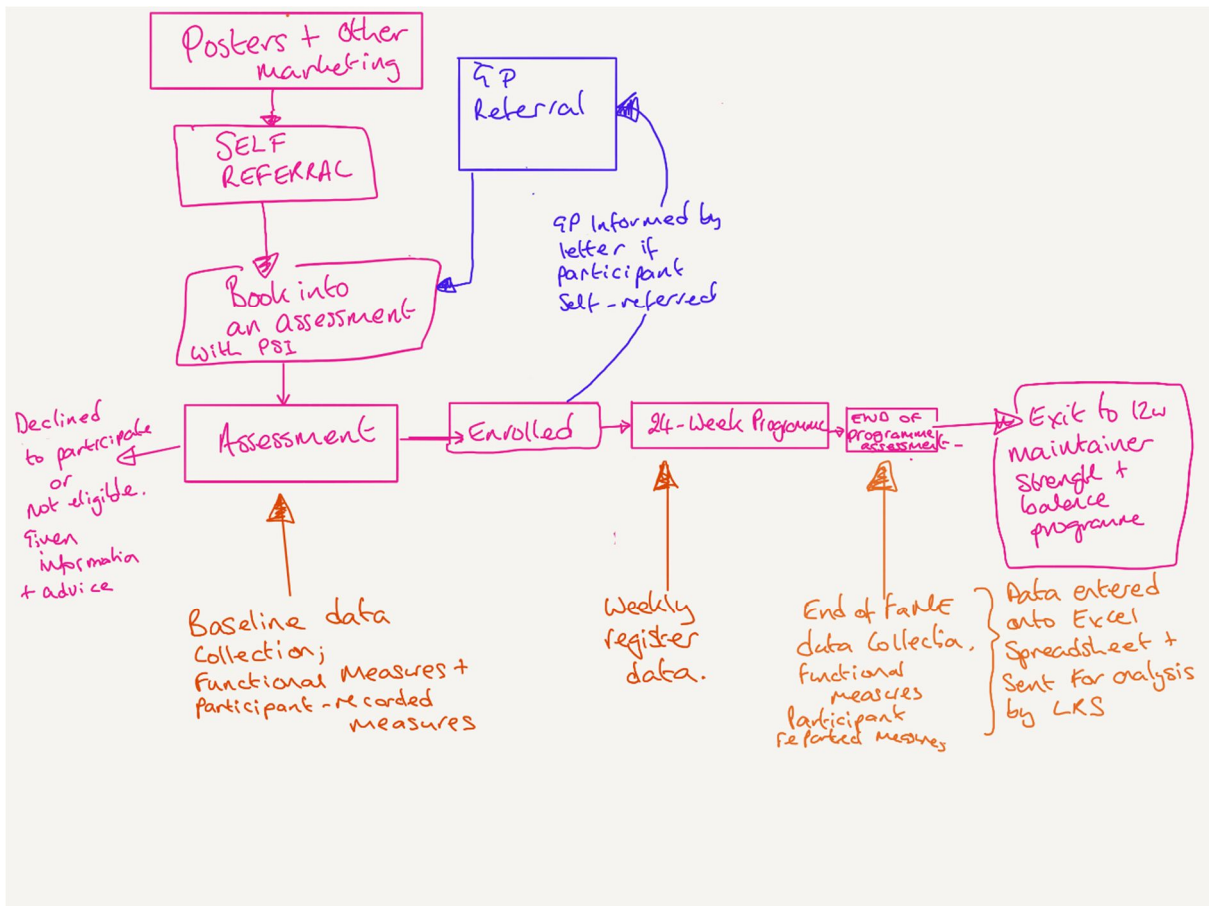 Posters + other
marketing
SELF
REFERRAL
GP
Referral
GP Informed by
letter if
participant
Self-referred
Book into
an assessment
with PSI
Declined
to participate
or
not eligible.
Given
information
+ advice
Assessment
Enrolled
24-Week Programme
END OF
programme
assessment
Exit to 12w
maintainer
strength +
balance
programme
Baseline data
Collection;
Functional measures +
participant-recorded
measures
Weekly
register
data.
End of FaME
data collection,
functional
measures
Participant
reported measures
Data entered
onto Excel
Spreadsheet +
Sent for analysis
by LKS